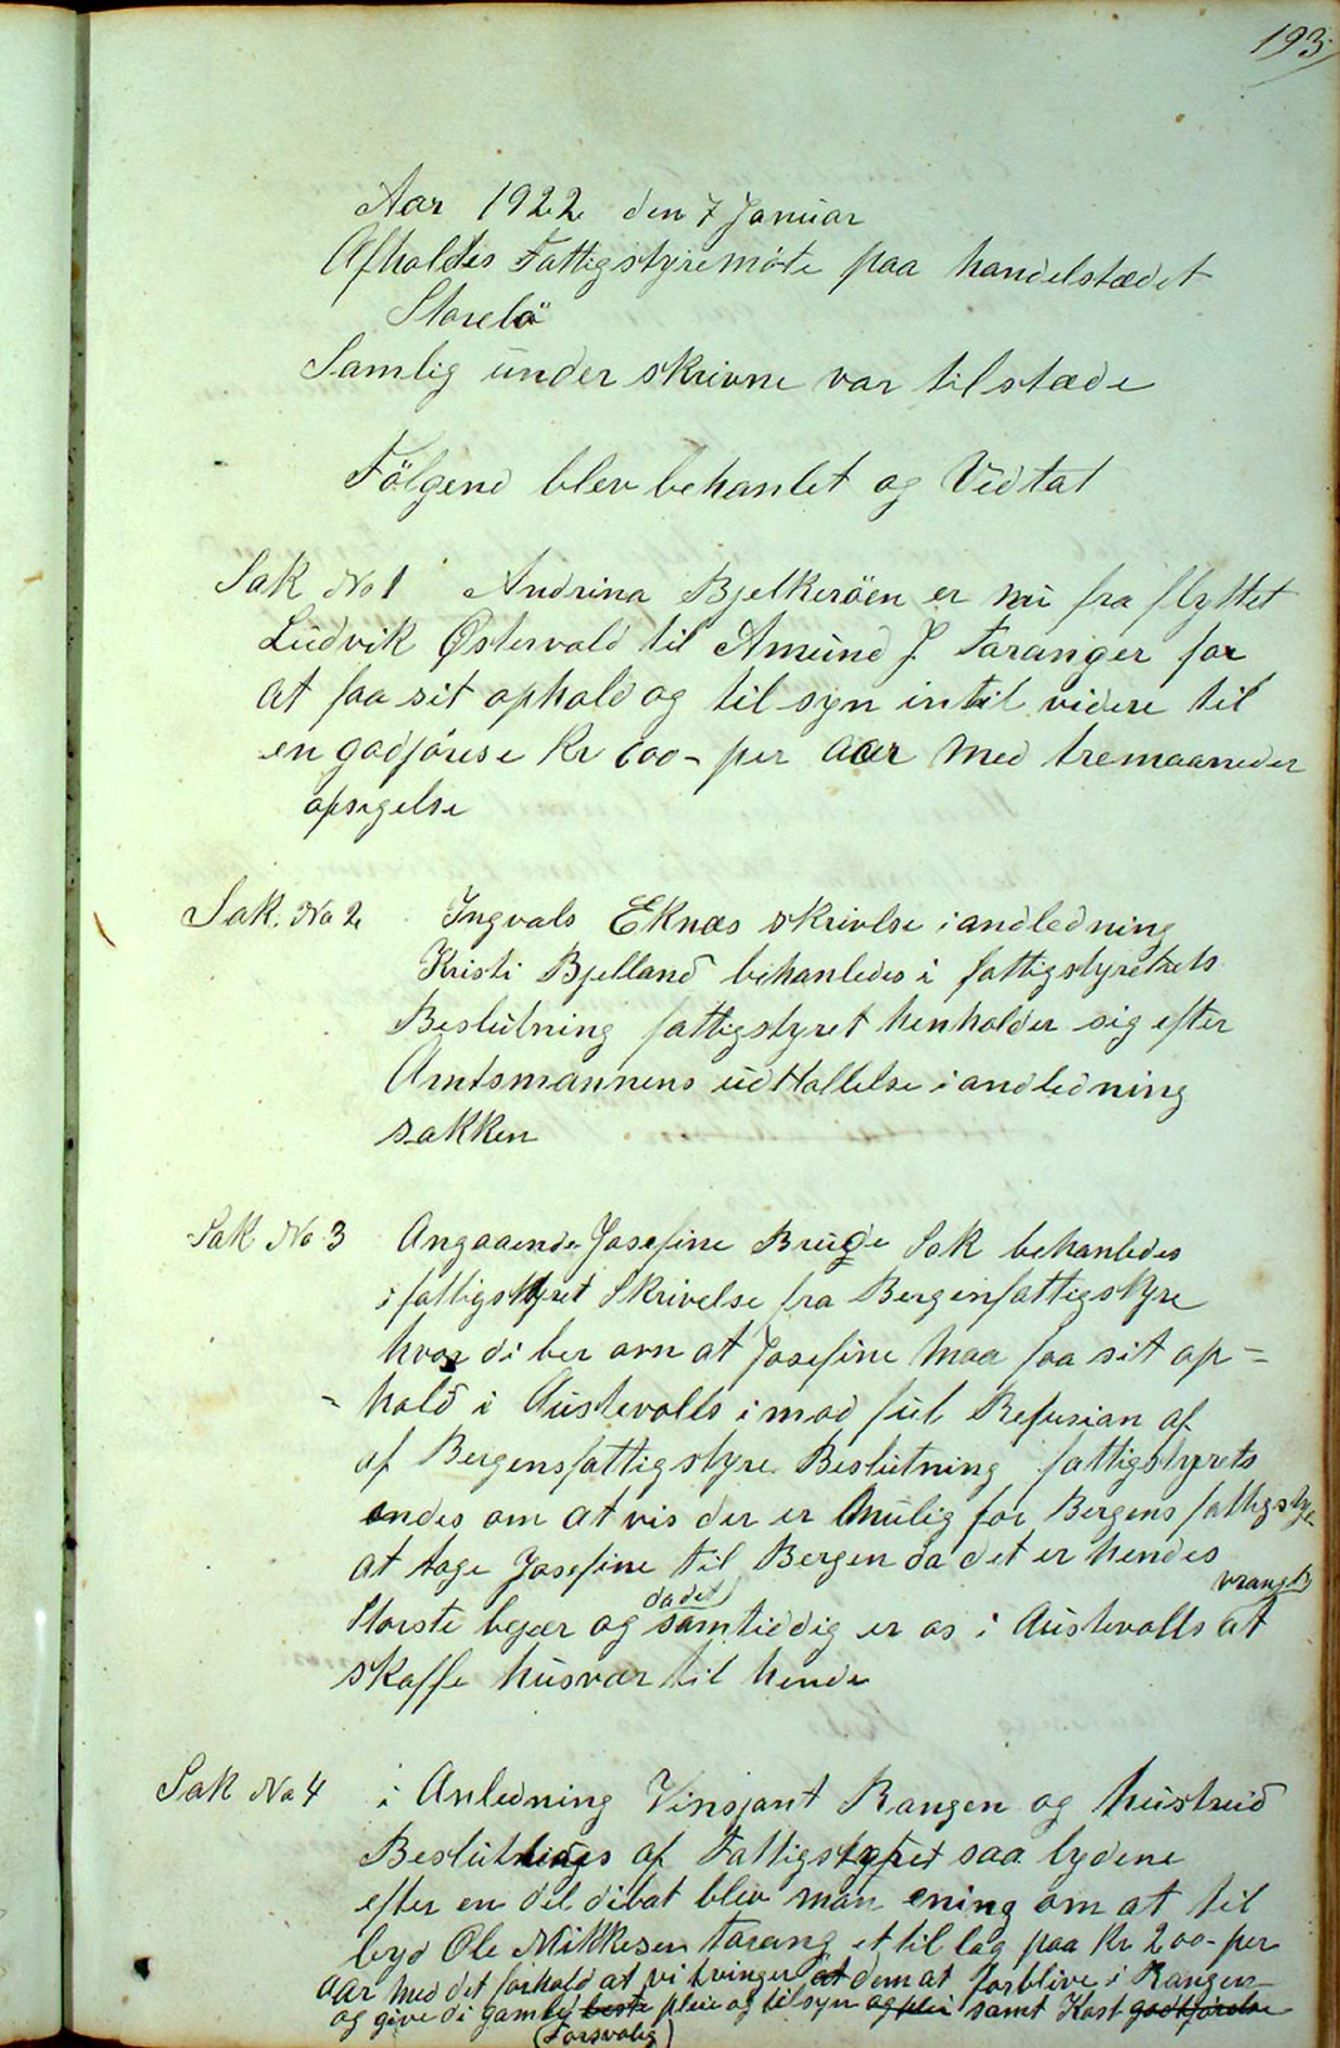 193
Aar 1922 den 7 Januar
Afholdtes Fattigstyremöte paa handelstædet
Storebö
Samlig under skrivne var tilstæde
Fölgend blev behanlet og Vedtat
Sak No 1 Andrina Bjelkeröen er nu fra flyttet
Ludvik Østervold til Amund J. Taranger for
at faa sit ophold og til syn intil videre til
en godjörese Kr 600- per aar med tremaaneder
opsigelse
Sak. No 2 Ingvals Eknæs skrivlse i andledning
Kristi Bjelland behanledes i fattigstyretrets
Beslutning fattigstyret henholder sig efter
Amtsmannens udttallelse i andledning
sakken
Sak No 3 Angaaende Josefine Bruge Sak behanledes
i fattigstyret Skrivelse fra Bergenfattigstyre
hvor di ber om at Josefine maa faa sit op=
=hold i Austevolls imod ful Refusian af
af Bergensfattigstyre Beslutning fattigstyrets
endes om at vis der er mulig for Bergens fattigstyre
at tage Josefine til Bergen da det er hendes
Störste bejær og dadet samtiddig er os i Austevolls vrangt at
skaffe husvær til hende
Sak No 4 i Anledning Vinsjant Rangen og hustrud
Beslutnings af Fattigstyret saa lydene
efter en del dibat blev man ening om at til
byd Ole Mikkesen Tarang et til lag paa Kr 200- per
aar med det forhold at vi tvinger at dem at forblive i Rangen
og give di gamle beste pleie og tilsyn og plei samt Kost godtjörelse
(Forsvalig)